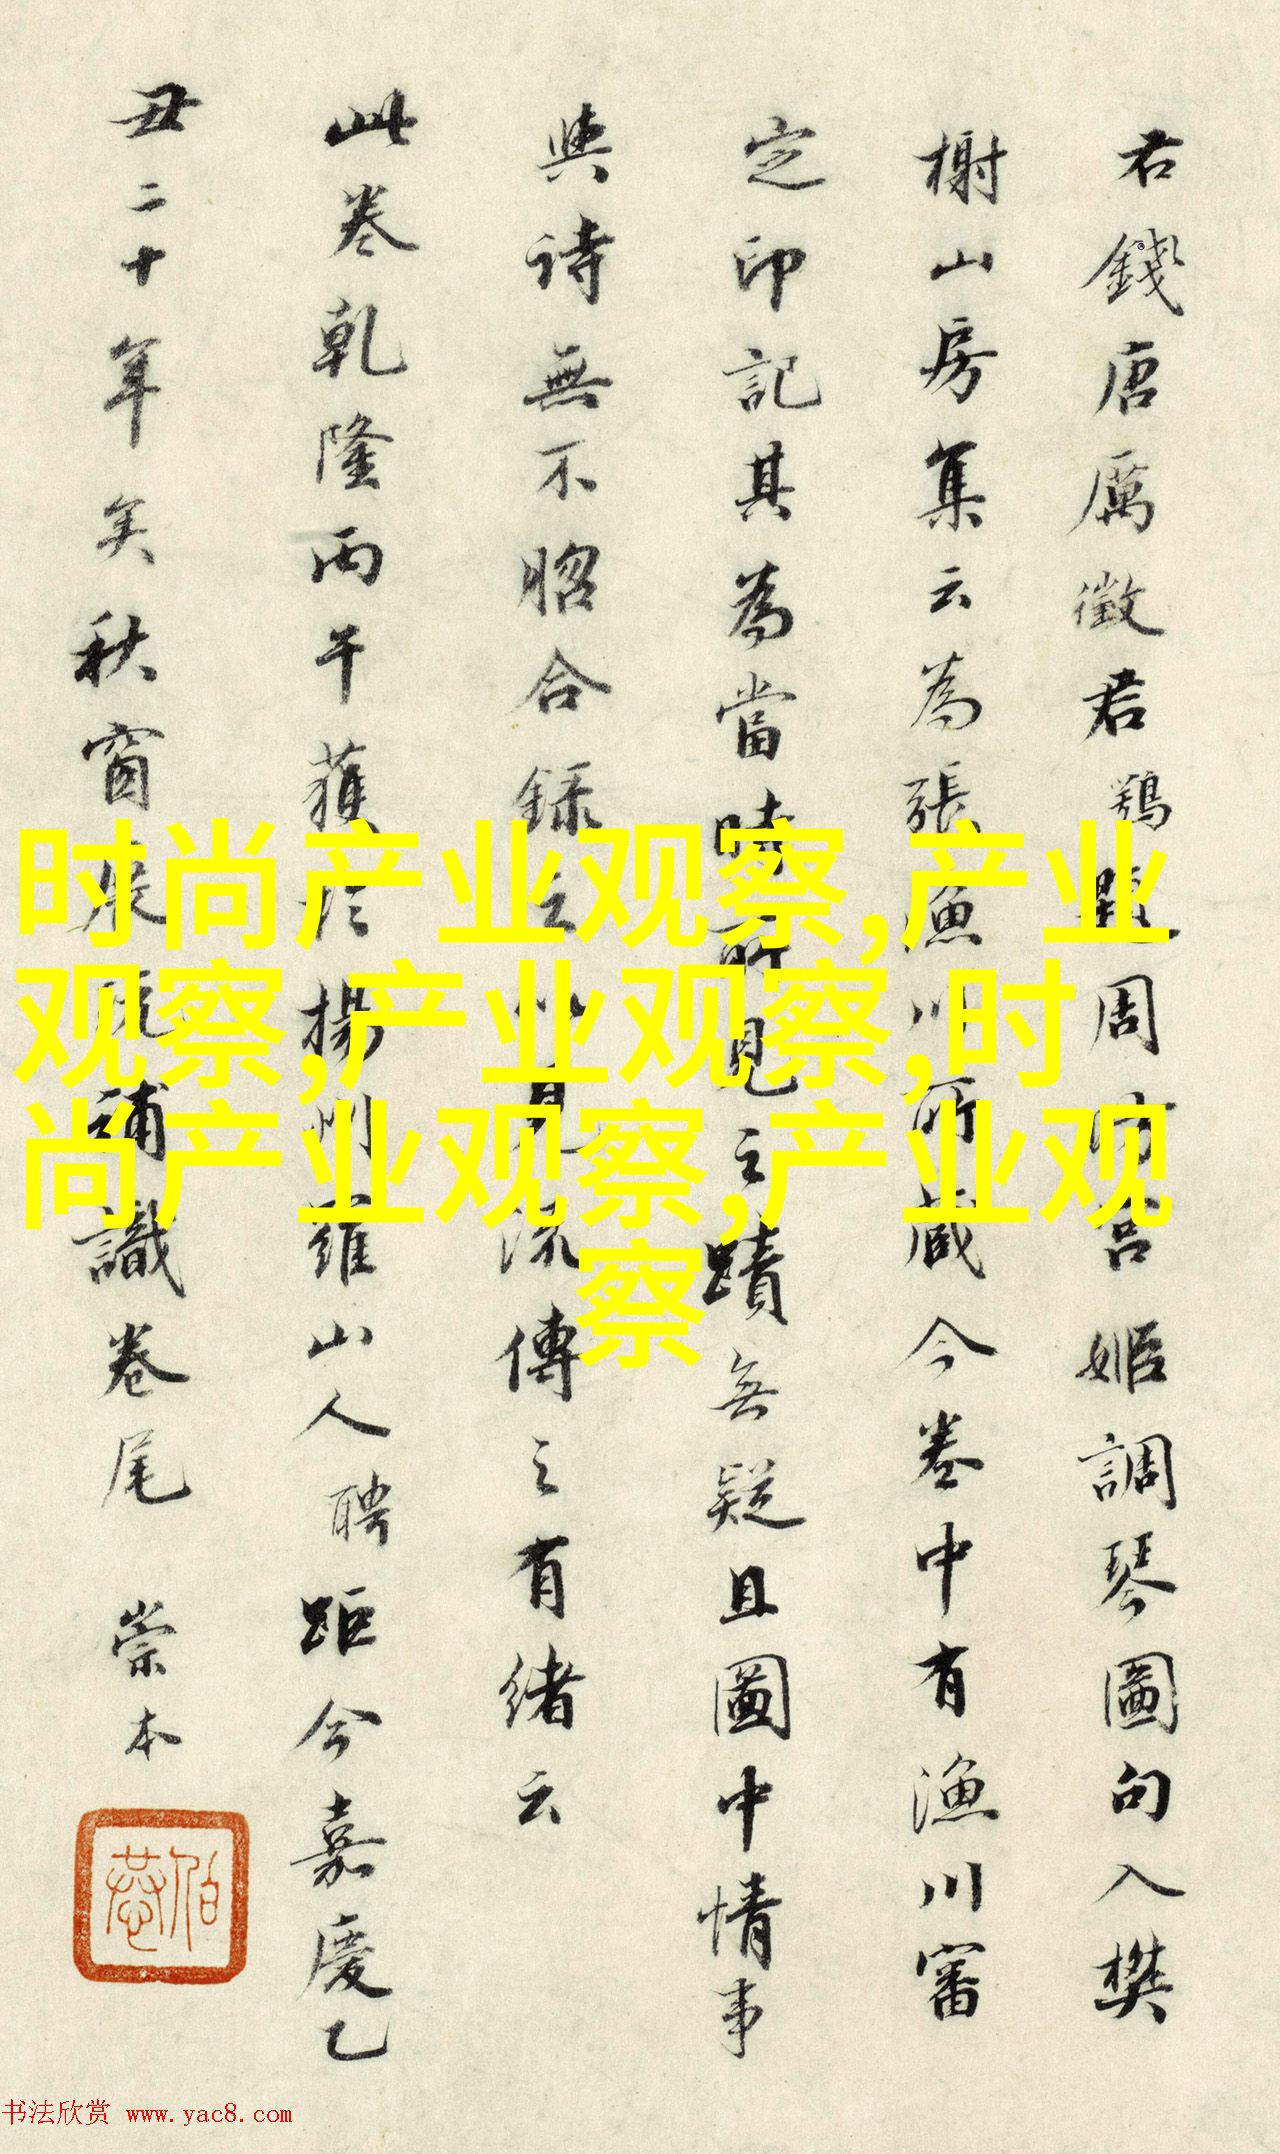 君錢唐厲徵君鶚題周昉宮姬調琴圖句入樊
榭山房集云為張漁川所藏今卷中有漁川審
定印記其為當時所見之蹟無疑且圖中情事
與詩無不脗合錄之以見流傳之有緒云
此卷乾隆丙午獲於揚州羅山人聘距今嘉慶乙
丑二十年矣秋窗展玩補識卷尾 崇本
时尚产业观察,产业
观察,产业观察,时
尚产业观察,产业观
察
书法欣赏 www.yac8.com